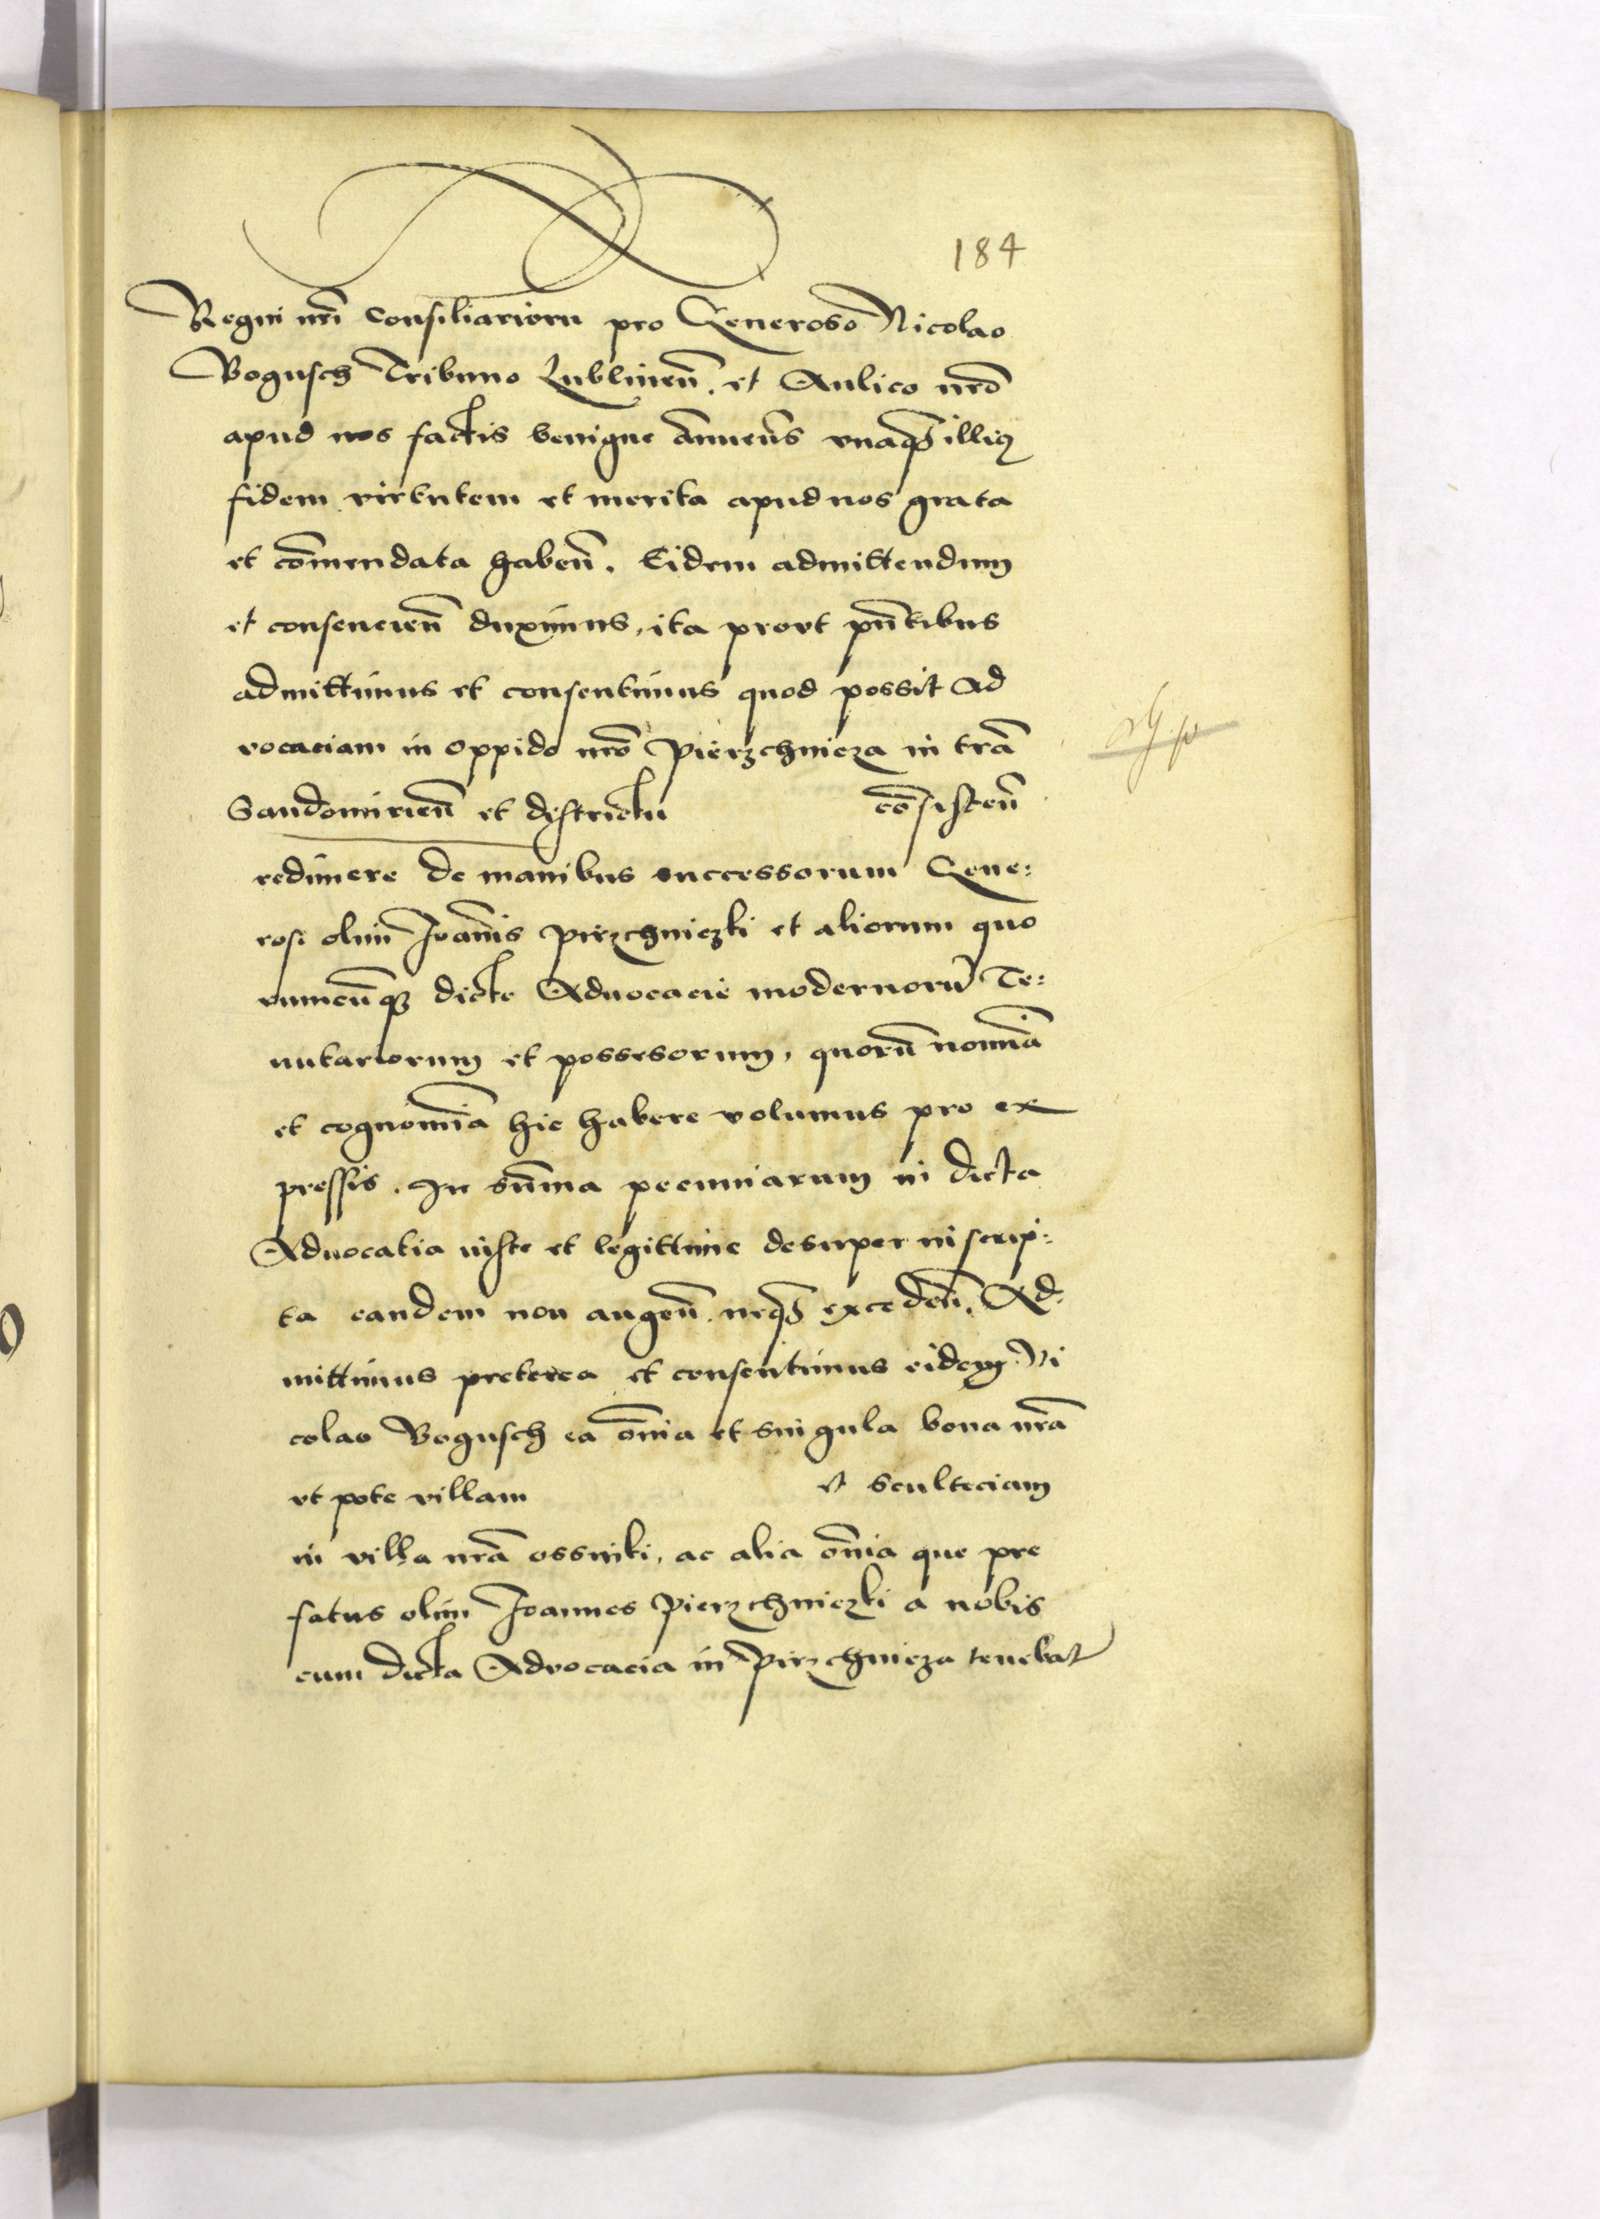 184
Regni nr̄i Consiliariorū pro Generoso Nicolao
Bogusch Tribuno Lublineñ. et Aulico nr̄o
apud nos factis benigne Annueñs vnaqȝ illiꝯ
fidem virtutem et merita apud nos grata
et cōmendata habeñ. Eidem admittendum
et conscencieñ duximus, ita provt pn̄tibus
admittimus et consentimus quod possit Ad
vocaciam in oppido nr̄o Pierzchnicza in trā
Sandomirieñ et districtu cōsisteñ
redimere de manibus successorum Gene:
rosi olim Ioānis Pirzchniczki et aliorum quo
rumcūqȝ dicte Aduocacie modernorū Te:
nutariorum et possesorum, quorū nomīa
et cognomīa hic habere volumus pro ex
pressis. In sūma pecuniarum in dicta
Aduocatia iuste et legittime desuper inscrip:
ta eandem non augeñ. neqȝ excedeñ. Ad:
mittimus preterea et consentimus eidem Ni
colao Bogusch ea om̄ia et singula bona nr̄a
vt pote villam et scultetiam
in villa nr̄a ossniki, ac alia om̄ia que pre
fatus olim Joannes Pierzchniczki a nobis
cum dicta Advocacia in Pirzchnicza tenebat